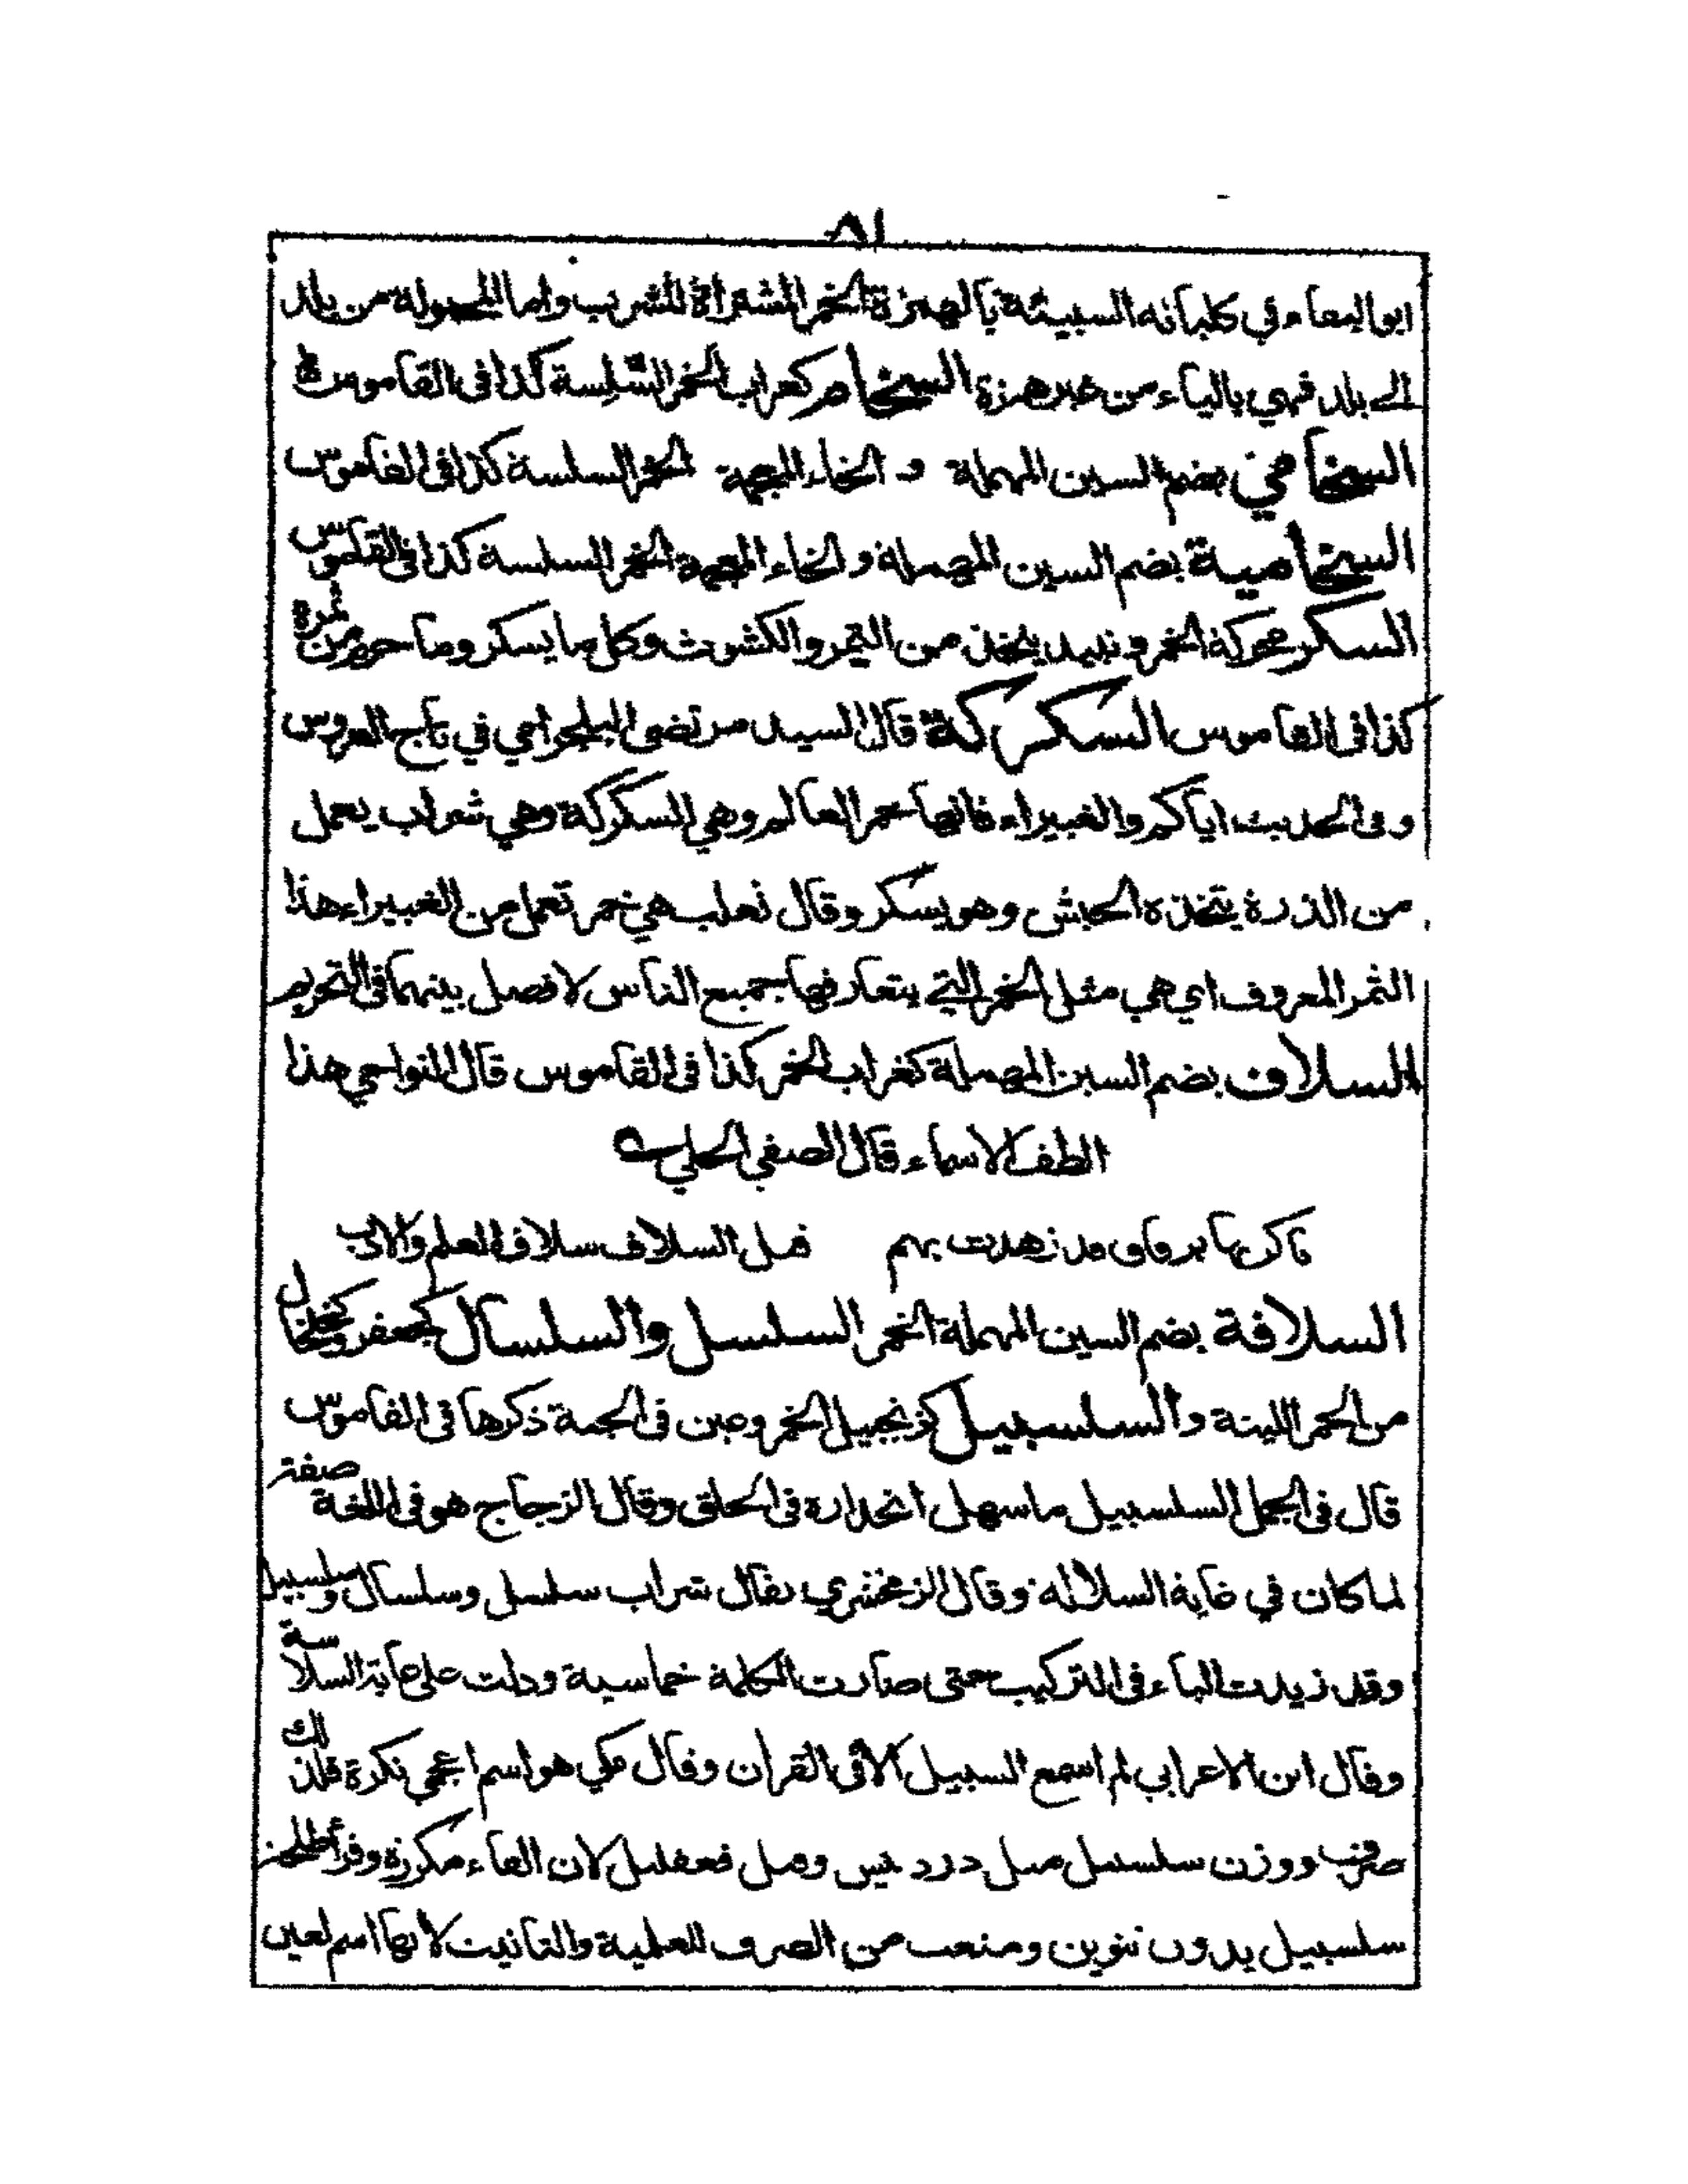 ٨١
ابو البقاء في كلياته السبيئة بالهمزة الخمر المشتراة للشرب واما المحمولة من بلد
الى بلد فهي بالياء من غير همزة السخام كغراب الخمر السلسة كذا في القاموس
السخامي بضم السين المهملة و الخاء المعجمة الخمر السلسة كذا في القاموس
السخامية بضم السين المهملة و الخاء المعجمة الخمر السلسة كذا في القاموس
السكر محركة الخمر و نبيذ يتخذ من التمر والكشوث وكل ما يسكر وما حرم من ثمرة
كذا في القاموس السكركة قال السيد مرتضى البلجرامي في تاج العروس
وفي الحديث اياكم والغبيراء فانها خمر العالم وهي السكركة وهي شراب يعمل
من الذرة يتخذه الحبش وهو يسكر وقال ثعلب هي خمر تعمل من الغبيراء هذا
الثمر المعروف اي هي مثل الخمر التي يتعارفها جميع الناس لا فصل بينهما في التحريم
السلاف بضم السين المهملة كغراب الخمر كذا في القاموس قال النواجي هذا
الطف الاسماء قال الصفي الحلي
زهدت بهم السلاف سلاف العلم والادب
السلافة بضم السين المهملة الخمر السلسل والسلسال كجعفر وخلخال
من الخمر اللينة والسلسبيل كزنجبيل الخمر وعين في الجنة ذكرها في القاموس
قال في الجمل السلسبيل ما سهل انحداره في الحلق وقال الزجاج هو في اللغة صفة
لما كان في غاية السلاله وقال الزمخشري يقال شراب سلسل وسلسال وسلسبيل
وقد زيدت الباء في التركيب حتى صارت الكلمة خماسية ودلت على غاية السلاسة
وقال ابن الاعرابي لم اسمع السبيل الا في القران وقال مكي هو اسم اعجمي نكرة فلذلك
صرف ووزن سلسبيل مثل دردبيس وقيل فعفليل لان الفاء مكررة وقرأ طلحة
سلسبيل بدون تنوين ومنعت من الصرف للعلمية والتانيث لانها اسم لعين